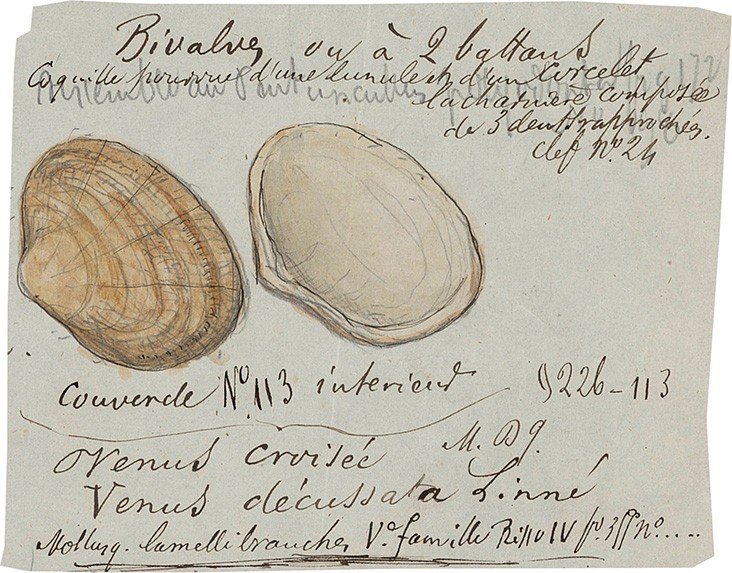 Bivalves ou à 2 battans
Coquille pourvue d'une lunule et d'un Corcelet
la charnière composée
de 3 dents rapprochés.
clef Nº 24
couvercle Nº 113 interieur 922b-113
Venus croisée M. Dg.
Venus décussata Linné
Mollusq. lamellibranches Vº famille Risso IV